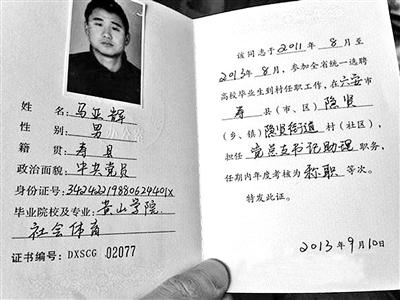 姓 名 马亚辉
性 别 男
籍 贯 寿县
政治面貌 中共党员
身份证号: 34242219880624401X
毕业院校及专业: 黄山学院
社会体育
证书编号: DXSCG 02077
该同志于2011年 8月至
2013年 8月, 参加全省统一选聘
高校毕业生到村任职工作, 在六安市
寿 县(市、区) 隐贤
(乡、镇) 隐贤街道 村(社区),
担任 党总支书记助理 职务,
任期内年度考核为 称职 等次。
特发此证。
2013年9月10日